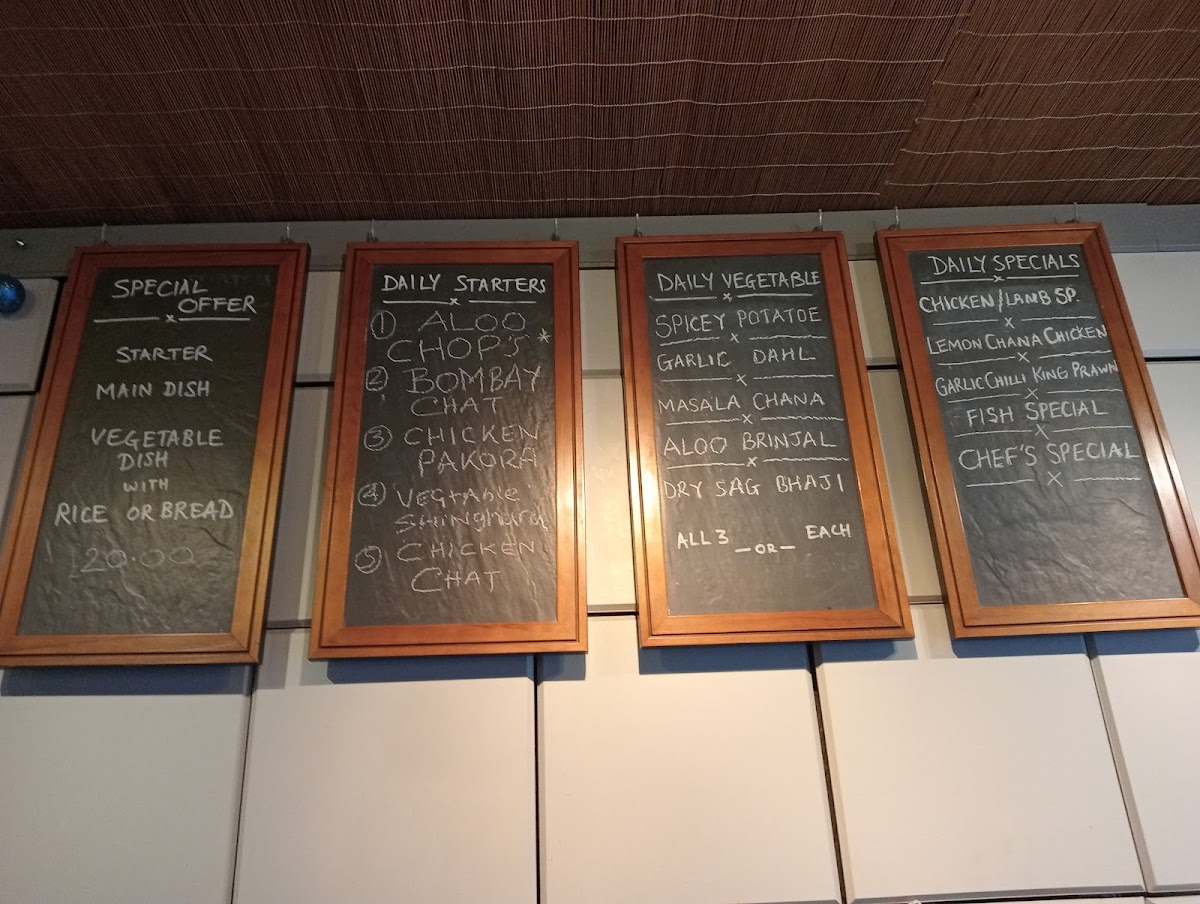 SPECIAL
OFFER
STARTER
MAIN DISH
VEGETABLE
DISH
WITH
RICE OR BREAD
20.00
DAILY STARTERS
① ALOO
CHOP'S *
② BOMBAY
CHAT
③ CHICKEN
PAKORA
④ VEGTABLE
SHINGHURA
⑤ CHICKEN
CHAT
DAILY VEGETABLE
SPICEY POTATOE
GARLIC DAHL
MASALA CHANA
ALOO BRINJAL
DRY SAG BHAJI
ALL 3 -OR- EACH
DAILY SPECIALS
CHICKEN/LAMB SP.
LEMON CHANA CHICKEN
GARLIC CHILLI KING PRAWN
FISH SPECIAL
CHEF'S SPECIAL